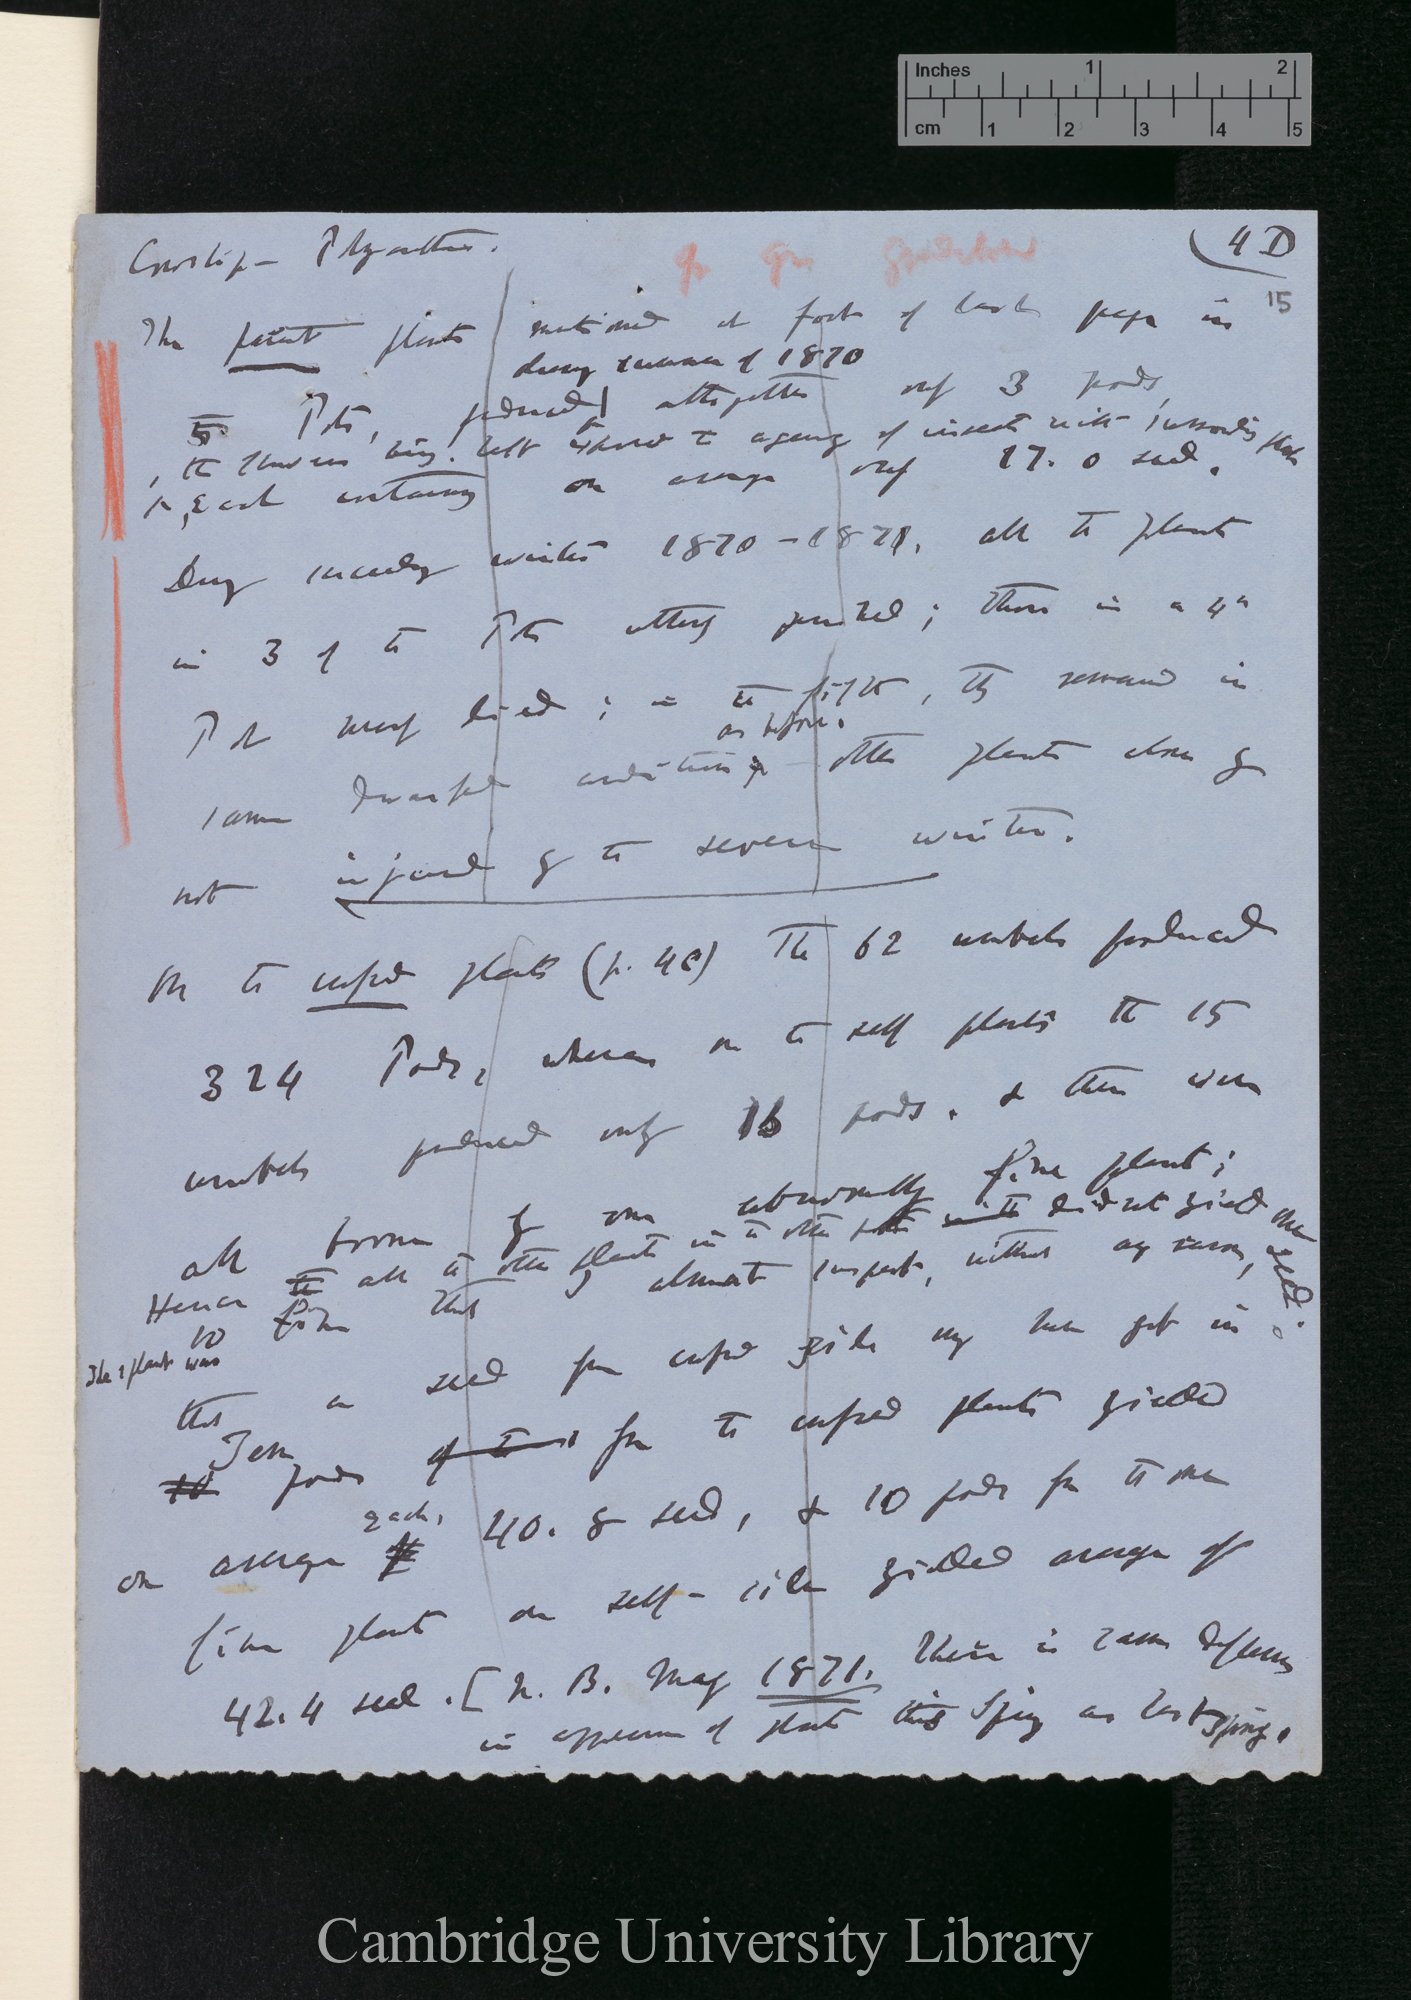 Inches 1 2
cm 1 2 3 4 5
Cowslip — Polyanthus.
4 D
15
The potent plants mentioned at foot of last page in
during summer of 1870
5 Pots, produced altogether only 3 pods,
, the flowers being left exposed to agency of insects with surrounding plants
& each containing on average only 17.0 seed.
During severe winter 1870–1871, all the plants
in 3 of the Pots utterly perished; those in a 4th
Pot nearly died; in the fifth, they remained in
as before.
same dwarfed condition — other plants close by
not injured by the severe winter.
On the crossed plants (p. 4C) The 62 umbels produced
324 Pods, whereas on the self plants the 15
umbels produced only 16 pods. & these were
all borne by one abnormally fine plant;
Hence all the other plants in the other pots did not yield one seed.
so fine that I almost suspect, without any reason,
The 1 plant was
that a seed from crossed side may have got in
Ten pods from the crossed plants yielded
each,
on average 40.8 seed, & 10 pods from the one
fine plant on self-side yielded average of
42.4 seed. [N.B. May 1871. There is same difference
in appearance of plants this Spring as last Spring.
Cambridge University Library